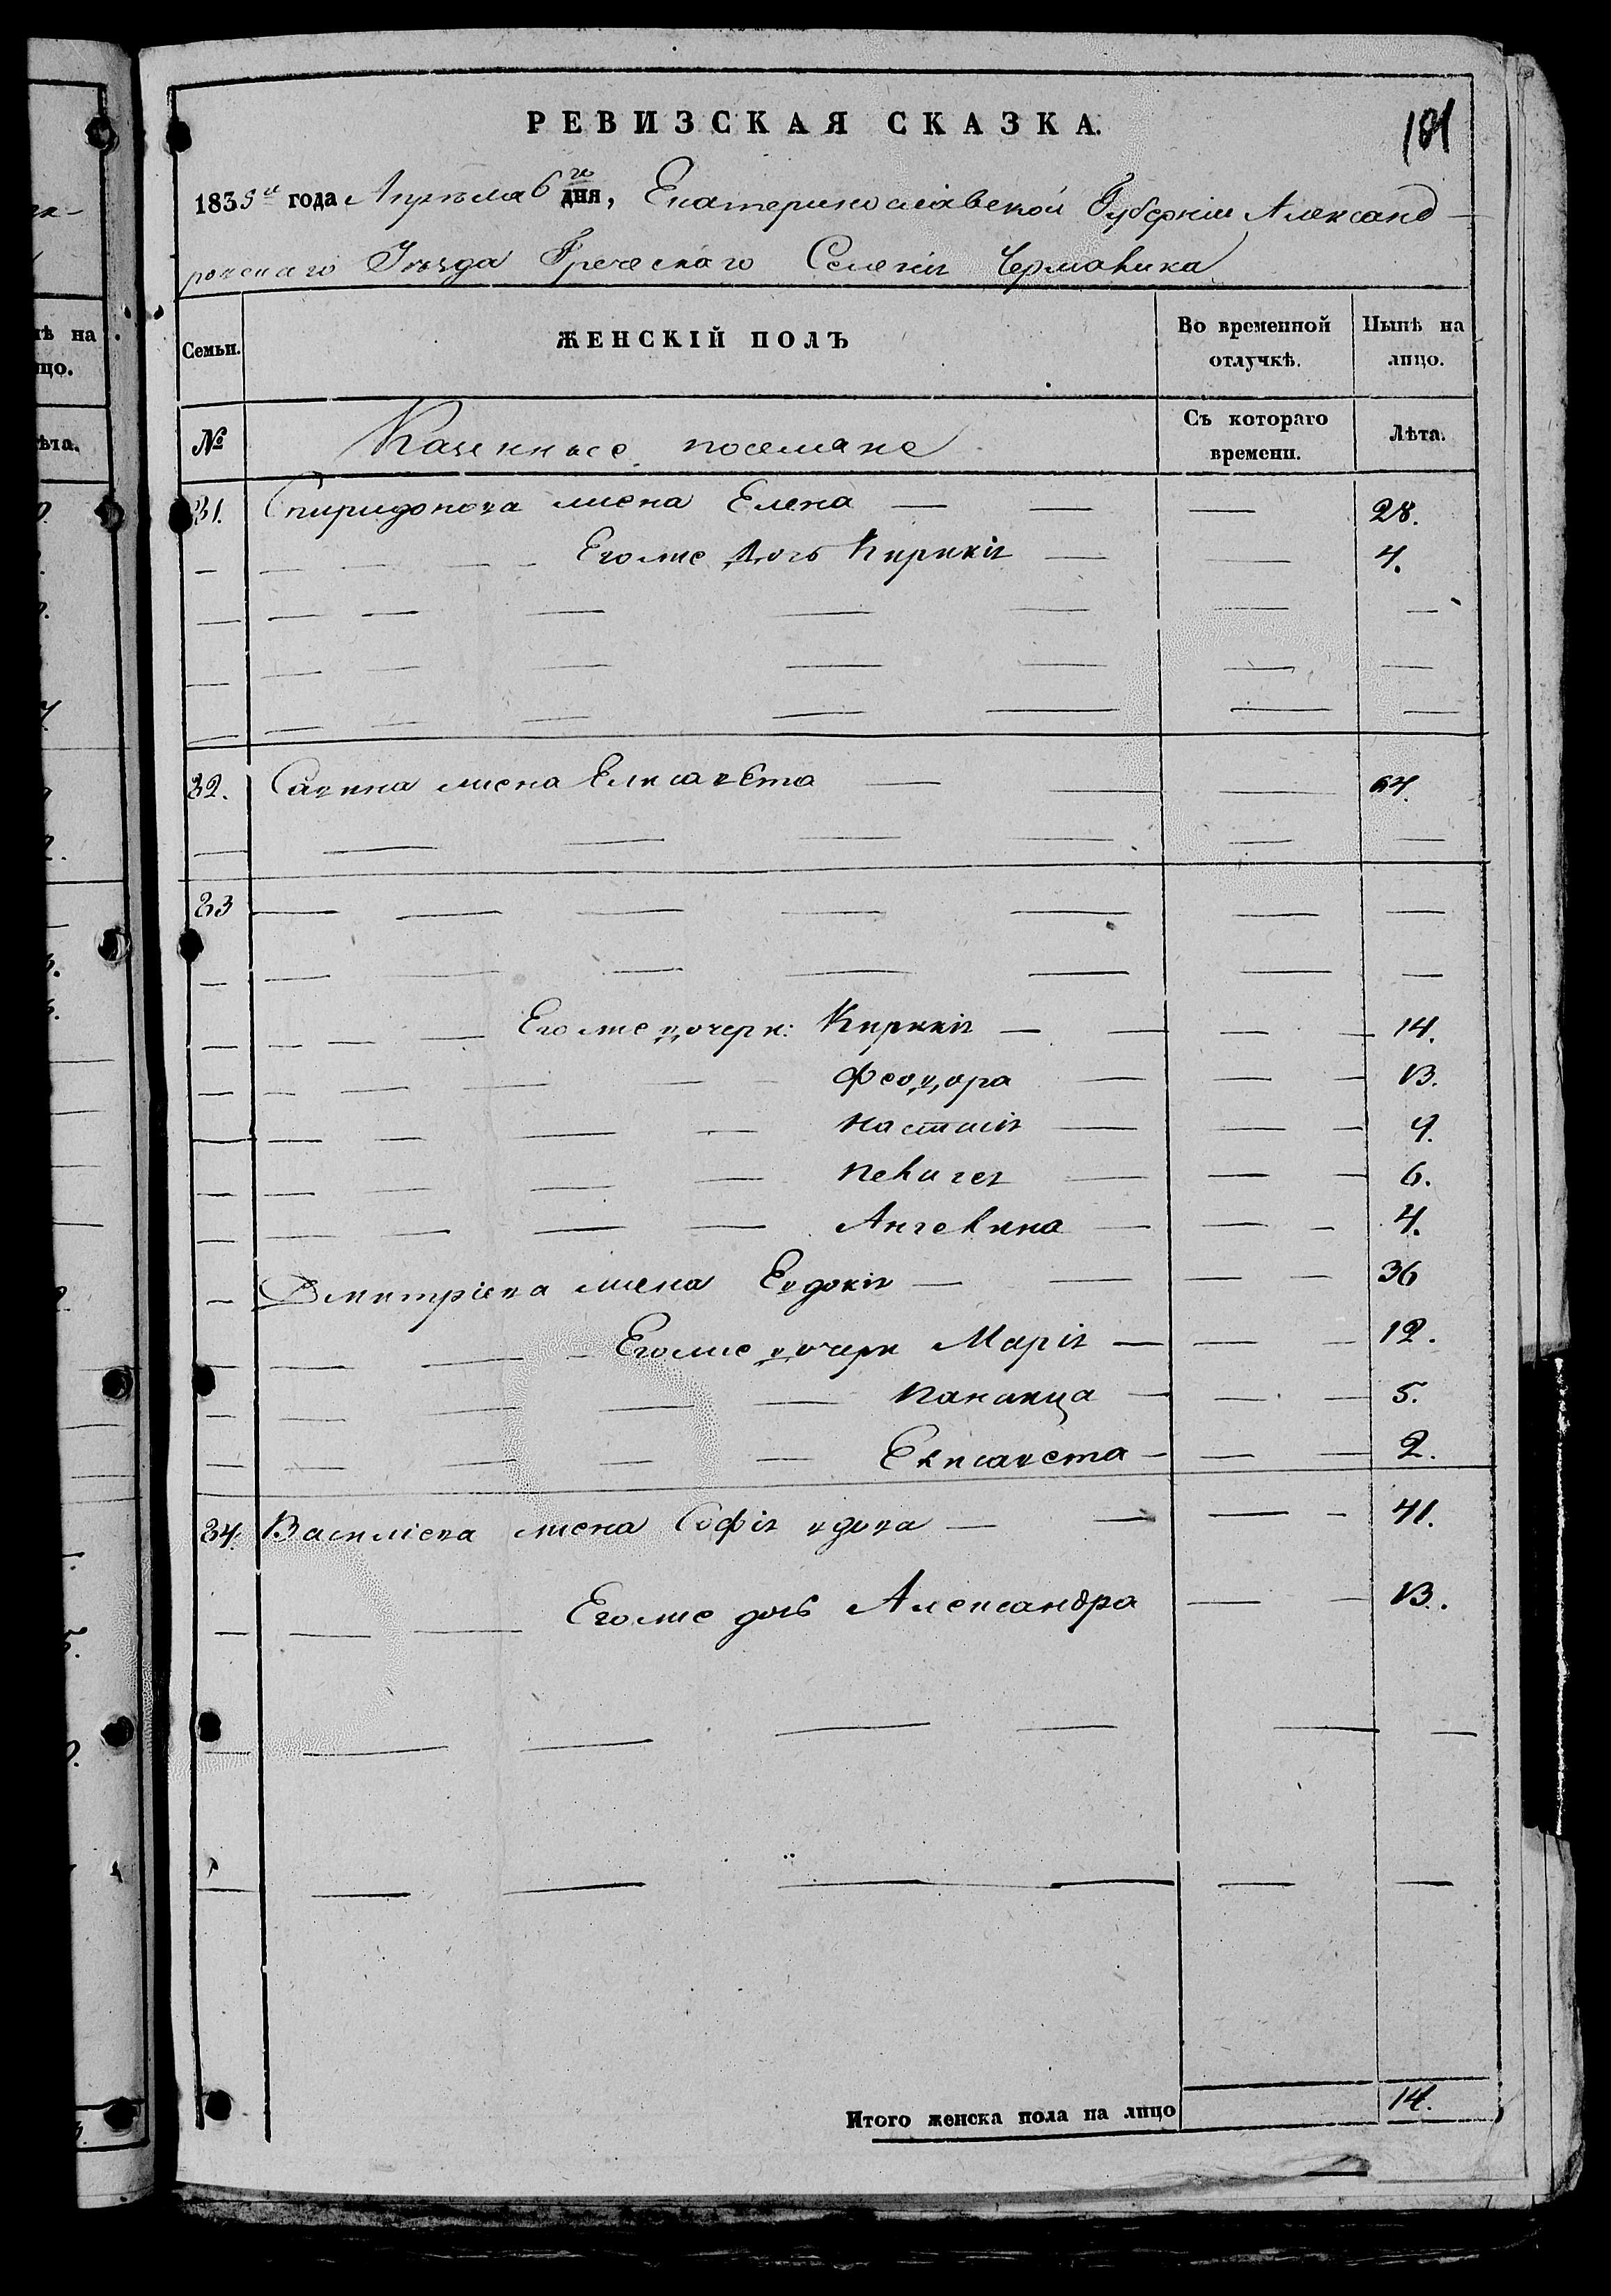 РЕВИЗСКАЯ СКАЗКА.
181
1835го года Апрѣля 6го дня, Екатеринославской Губерніи Александ-
ровскаго Уѣзда Греческаго Селенія Чермалика
Семьи. ЖЕНСКІЙ ПОЛЪ Во временной отлучкѣ. Нынѣ на лицо.
№ Казенные поселяне Съ котораго времени. Лѣта.
31. Спиридонова жена Елена — — — 28.
— — — — — Его же дочь Кирикія — — 4.
32. Савина жена Елисавета — — — 64.
33 — — — — — — —
— — — — Его же дочери: Кирикія — — — — 14.
Феодора — — — 13.
Настасія — — — 9.
6.
Ангелина — — — 4.
— Дмитріева жена Евдокія — — — — 36
— — — — Его же дочери Марія — — — 12.
5.
Елисавета — — — 2.
34. Василіева жена Софія вдова — — — — 41.
— — — Его же дочь Александра — — 13.
Итого женска пола на лицо 14.